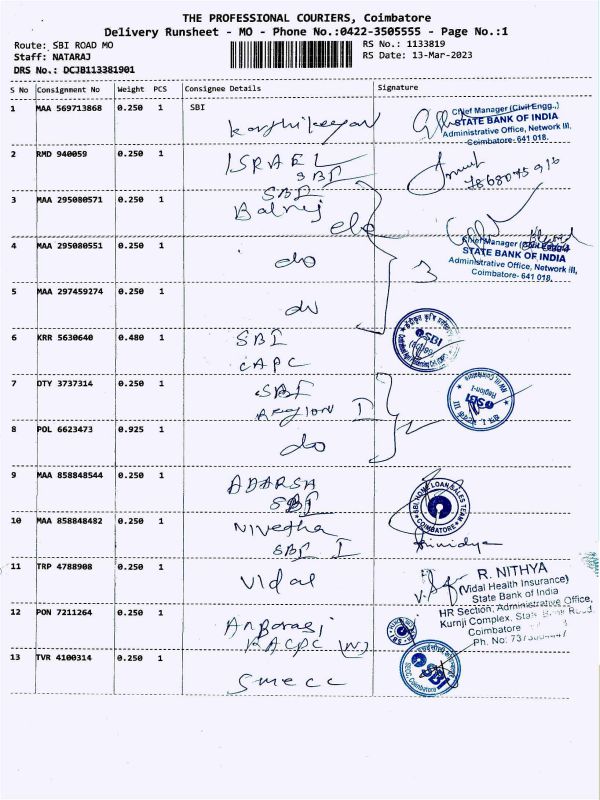 THE PROFESSIONAL COURIERS, Coimbatore
Delivery Runsheet - MO - Phone No.:0422-3505555 - Page No.:1
Route: SBI ROAD MO
RS No.: 1133819
Staff: NATARAJ
RS Date: 13-Mar-2023
DRS No.: DCJB113381901
S No Consignment No Weight PCS Consignee Details Signature
1 MAA 569713868 0.250 1 SBI
Karthikeyan
Chief Manager (Civil Engg.,)
STATE BANK OF INDIA
Administrative Office, Network III,
Coimbatore- 641 018.
2 RMD 940059 0.250 1 ISRAEL
SBI
3 MAA 295080571 0.250 1 SBI
Balraj
4 MAA 295080551 0.250 1 do
Chief Manager (Civil Engg.,)
STATE BANK OF INDIA
Administrative Office, Network III,
Coimbatore- 641 018.
5 MAA 297459274 0.250 1 do
6 KRR 5630640 0.480 1 SBI
CAPC
SBI
7 OTY 3737314 0.250 1 SBI
Region I
SBI
Region-I
8 POL 6623473 0.925 1 do
9 MAA 858848544 0.250 1 ADARSH
SBI
SBI HOME LOAN SALES TEAM
COIMBATORE
10 MAA 858848482 0.250 1 Nivetha
SBI I
Srividya
11 TRP 4788908 0.250 1 Vidal
R. NITHYA
(Vidal Health Insurance)
State Bank of India
HR Section, Administrative Office,
Kurnji Complex, State Bank Road,
Coimbatore
Ph. No:
12 PON 7211264 0.250 1 Anparasi
RACPC
13 TVR 4100314 0.250 1 SMECC
SBI